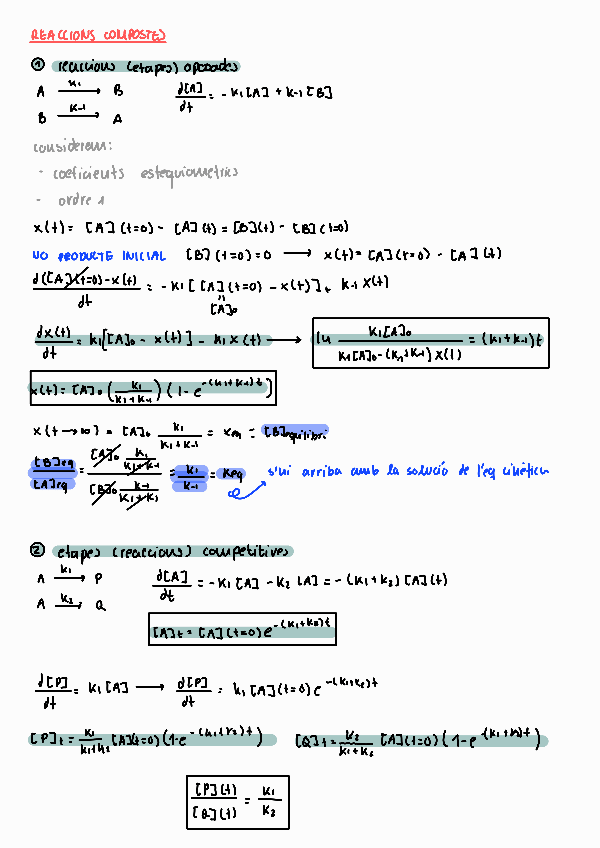 REACCIONS COMPOSTES
① reaccions (etapes) oposades
A —K1→ B   d[A]/dt = - K1[A] + K-1[B]
B —K-1→ A
considerem:
- coeficients estequiometrics
- ordre 1
x(t) = [A](t=0) - [A](t) = [B](t) - [B](t=0)
NO PRODUCTE INICIAL [B](t=0)=0 → x(t) = [A](t=0) - [A](t)
d([A](t=0)-x(t))/dt = - K1[[A](t=0) - x(t)] + K-1 x(t)
[A]0
dx(t)/dt = K1[[A]0 - x(t)] - K1 x(t) → ln K1[A]0/(K1[A]0-(K1+K-1)x(t)) = (K1+K-1)t
x(t) = [A]0 (K1/(K1+K-1)) (1-e^-(K1+K-1)t)
x(t→∞) = [A]0 K1/(K1+K-1) = xeq = [B]equilibri
[B]eq/[A]eq = ([A]0 K1/(K1+K-1))/([B]0 K-1/(K1+K1)) = K1/K-1 = Keq   s'hi arriba amb la solució de l'eq cinètica
② etapes (reaccions) competitives
A —K1→ P   d[A]/dt = -K1[A] - K2[A] = -(K1+K2)[A](t)
A —K2→ Q
[A]t = [A](t=0)e^-(K1+K2)t
d[P]/dt = K1[A] → d[P]/dt = K1[A](t=0)e^-(K1+K2)t
[P]t = K1/(K1+K2) [A](t=0)(1-e^-(K1+K2)t)   [Q]t = K2/(K1+K2) [A](t=0)(1-e^-(K1+K2)t)
[P](t)/[Q](t) = K1/K2